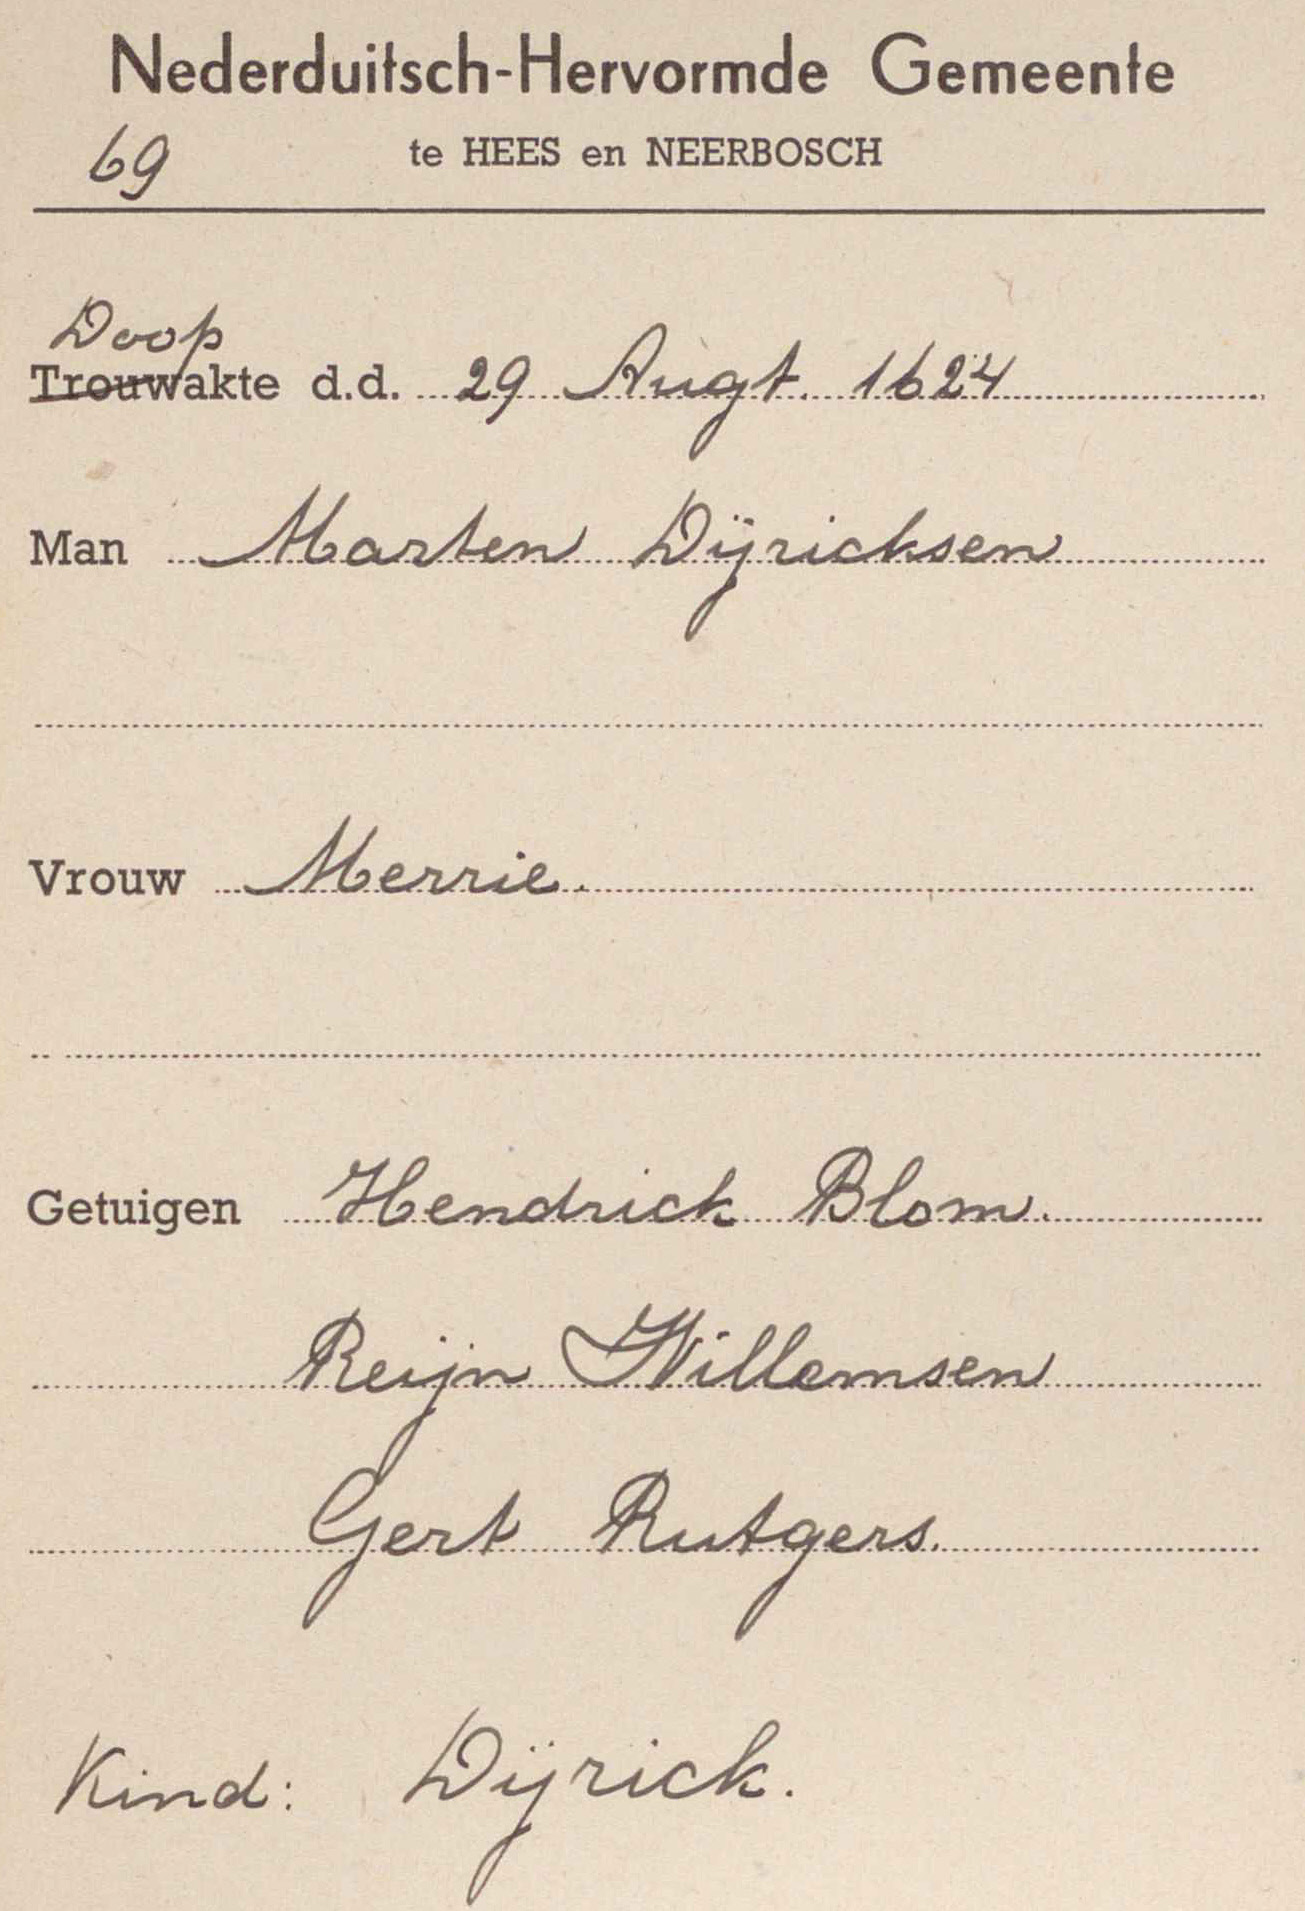 Nederduitsch-Hervormde Gemeente
69 te HEES en NEERBOSCH
Doop
Trouwakte d.d. 29 Augt. 1624
Man Marten Dijricksen
Vrouw Merrie.
Getuigen Hendrick Blom.
Reijn Willemsen
Gert Rutgers.
Kind: Dijrick.